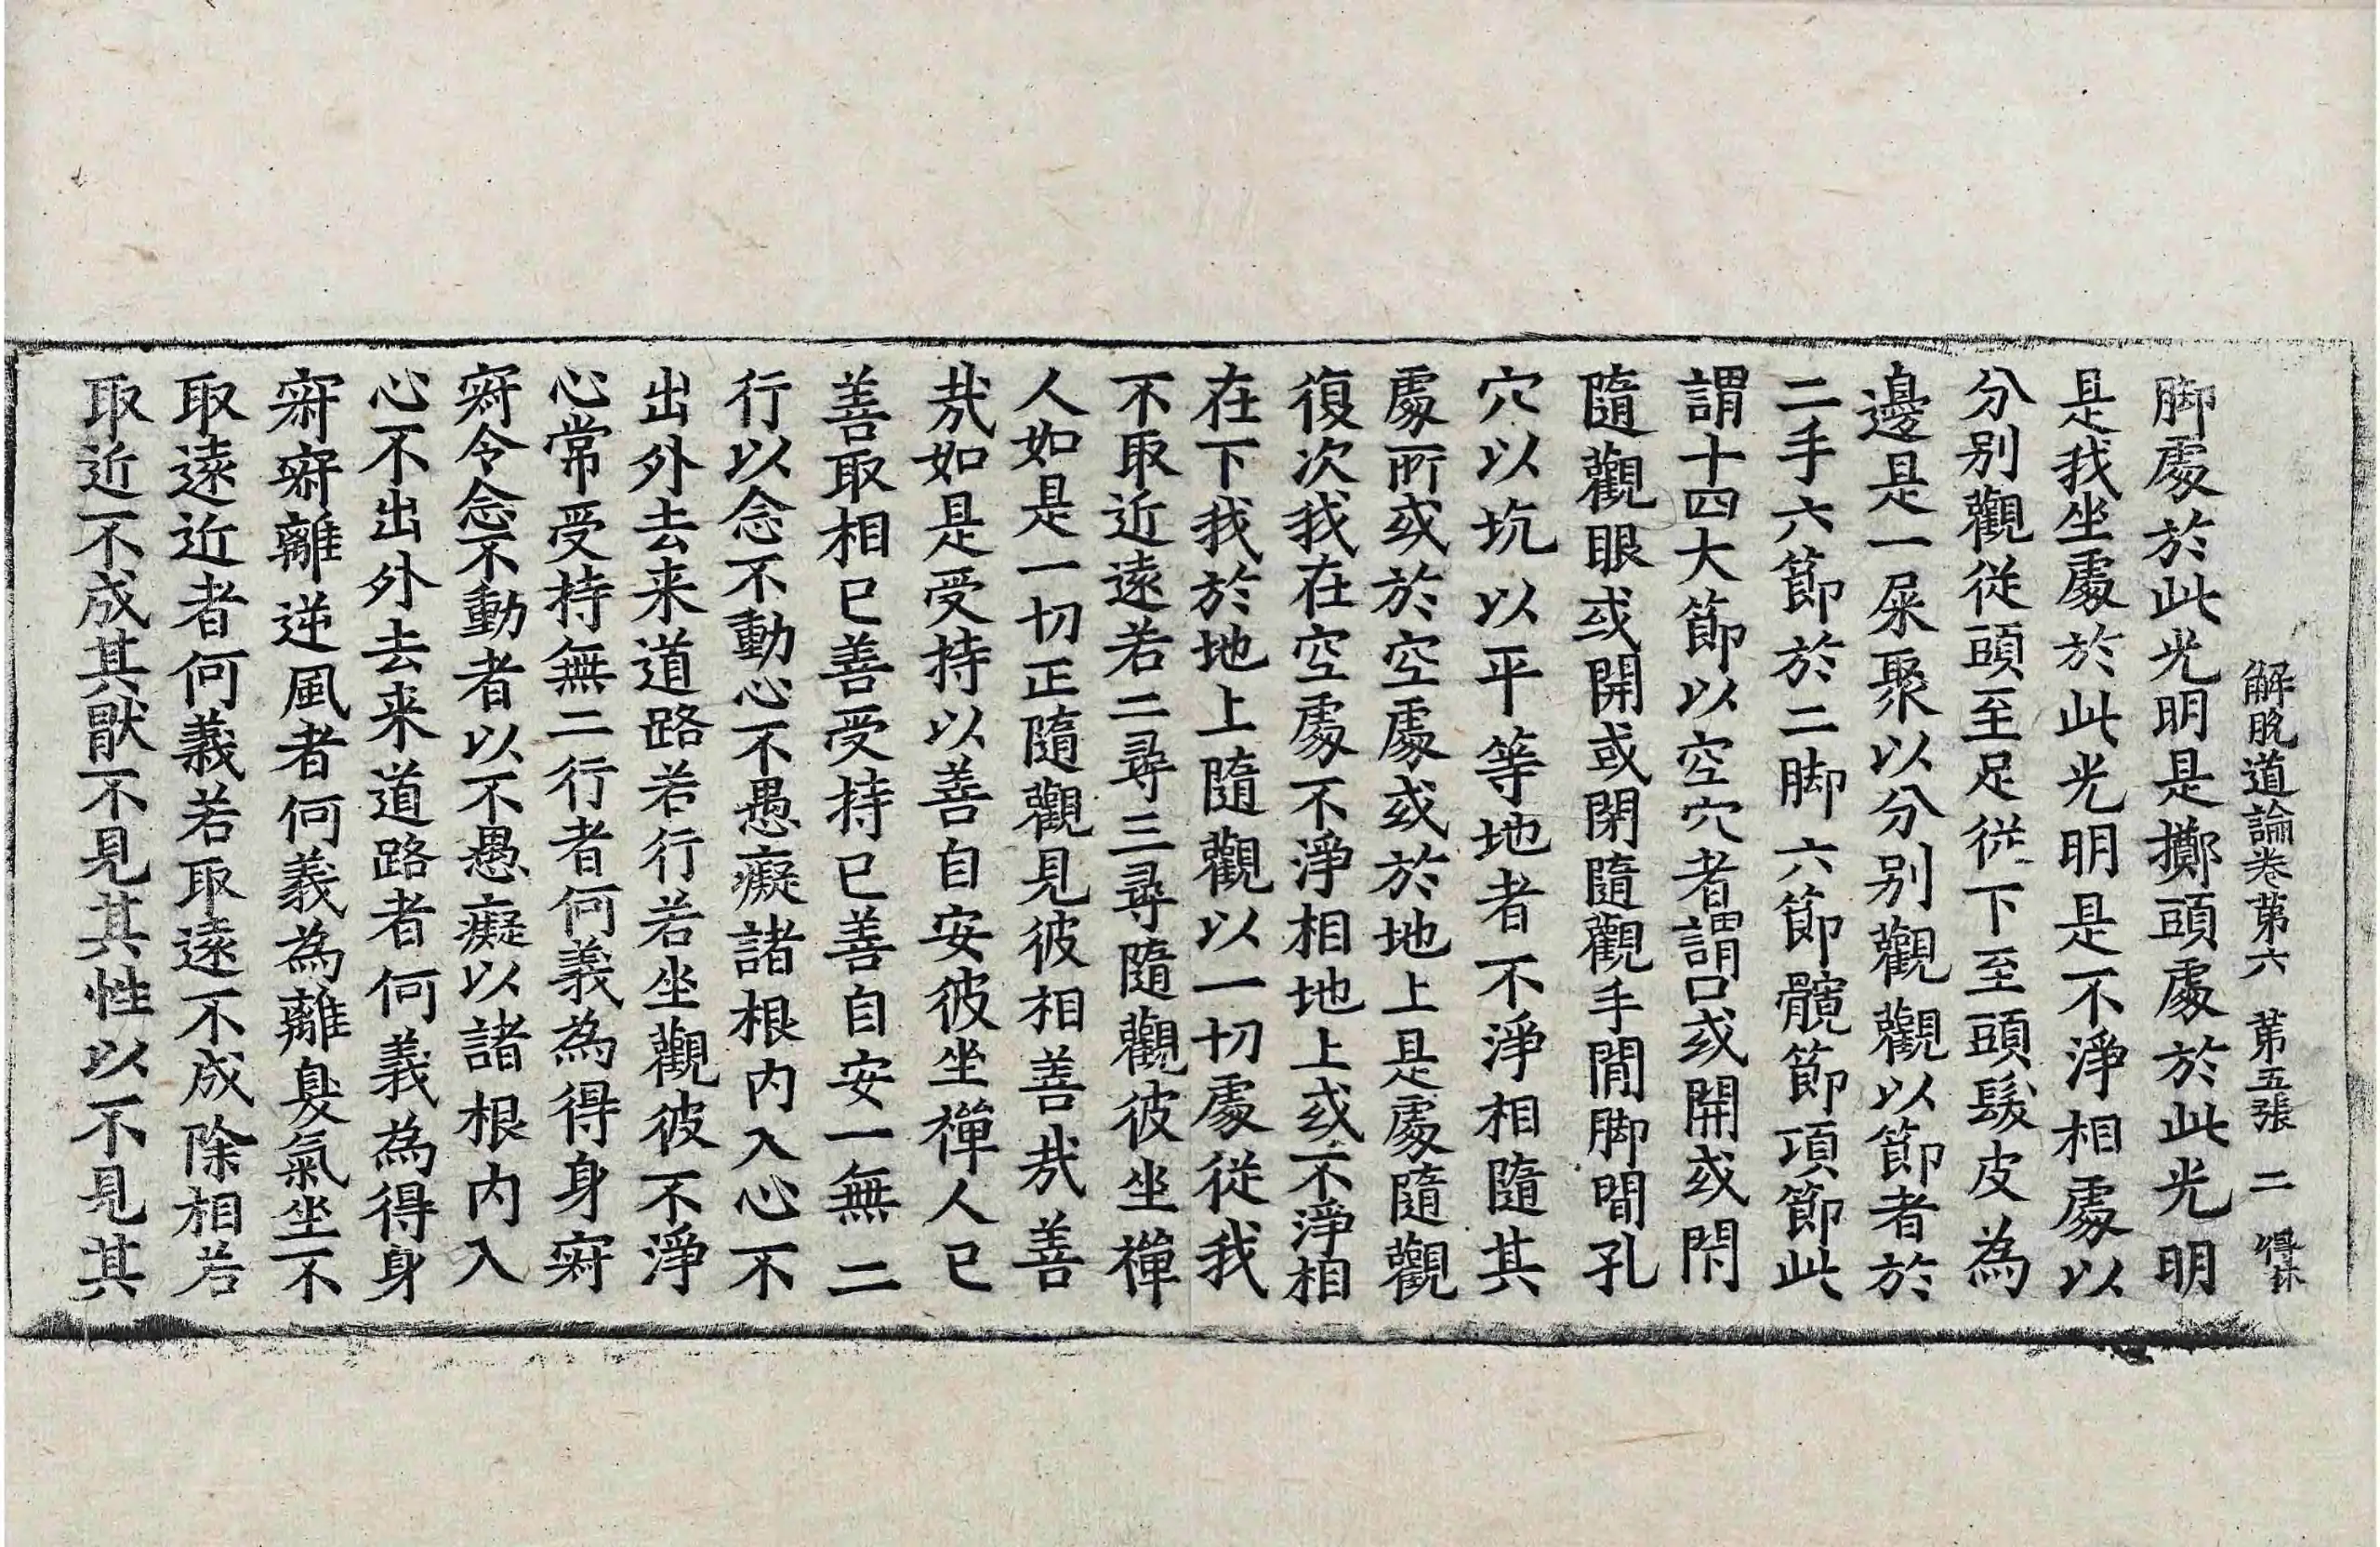 解脫道論卷第六　第五張　二　得林
脚處於此光明是擲頭處於此光明
是我坐處於此光明是不淨相處以
分別觀從頭至足從下至頭髮皮為
邊是一屎聚以分別觀觀以節者於
二手六節於二脚六節髖節項節此
謂十四大節以空穴者謂口或開或閇
隨觀眼或開或閇隨觀手間脚間孔
穴以坑以平等地者不淨相隨其
處所或於空處或於地上是處隨觀
復次我在空處不淨相地上或不淨相
在下我於地上隨觀以一切處從我
不取近遠若二尋三尋隨觀彼坐禪
人如是一切正隨觀見彼相善哉善
哉如是受持以善自安彼坐禪人已
善取相已善受持已善自安一無二
行以念不動心不愚癡諸根內入心不
出外去来道路若行若坐觀彼不淨
心常受持無二行者何義為得身寂
寂令念不動者以不愚癡以諸根內入
心不出外去来道路者何義為得身
寂寂離逆風者何義為離臭氣坐不
取遠近者何義若取遠不成除相若
取近不成其猒不見其性以不見其